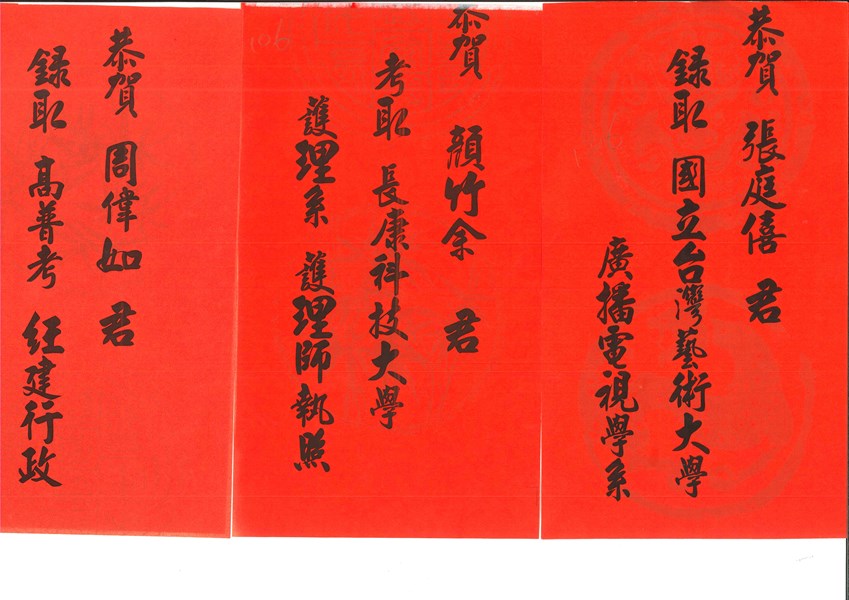 恭賀 張庭僖 君
録取 國立台灣藝術大學
廣播電視學系
恭賀 顏竹余 君
考取 長康科技大學
護理系 護理師執照
106
恭賀 周偉如 君
録取 高普考 经建行政